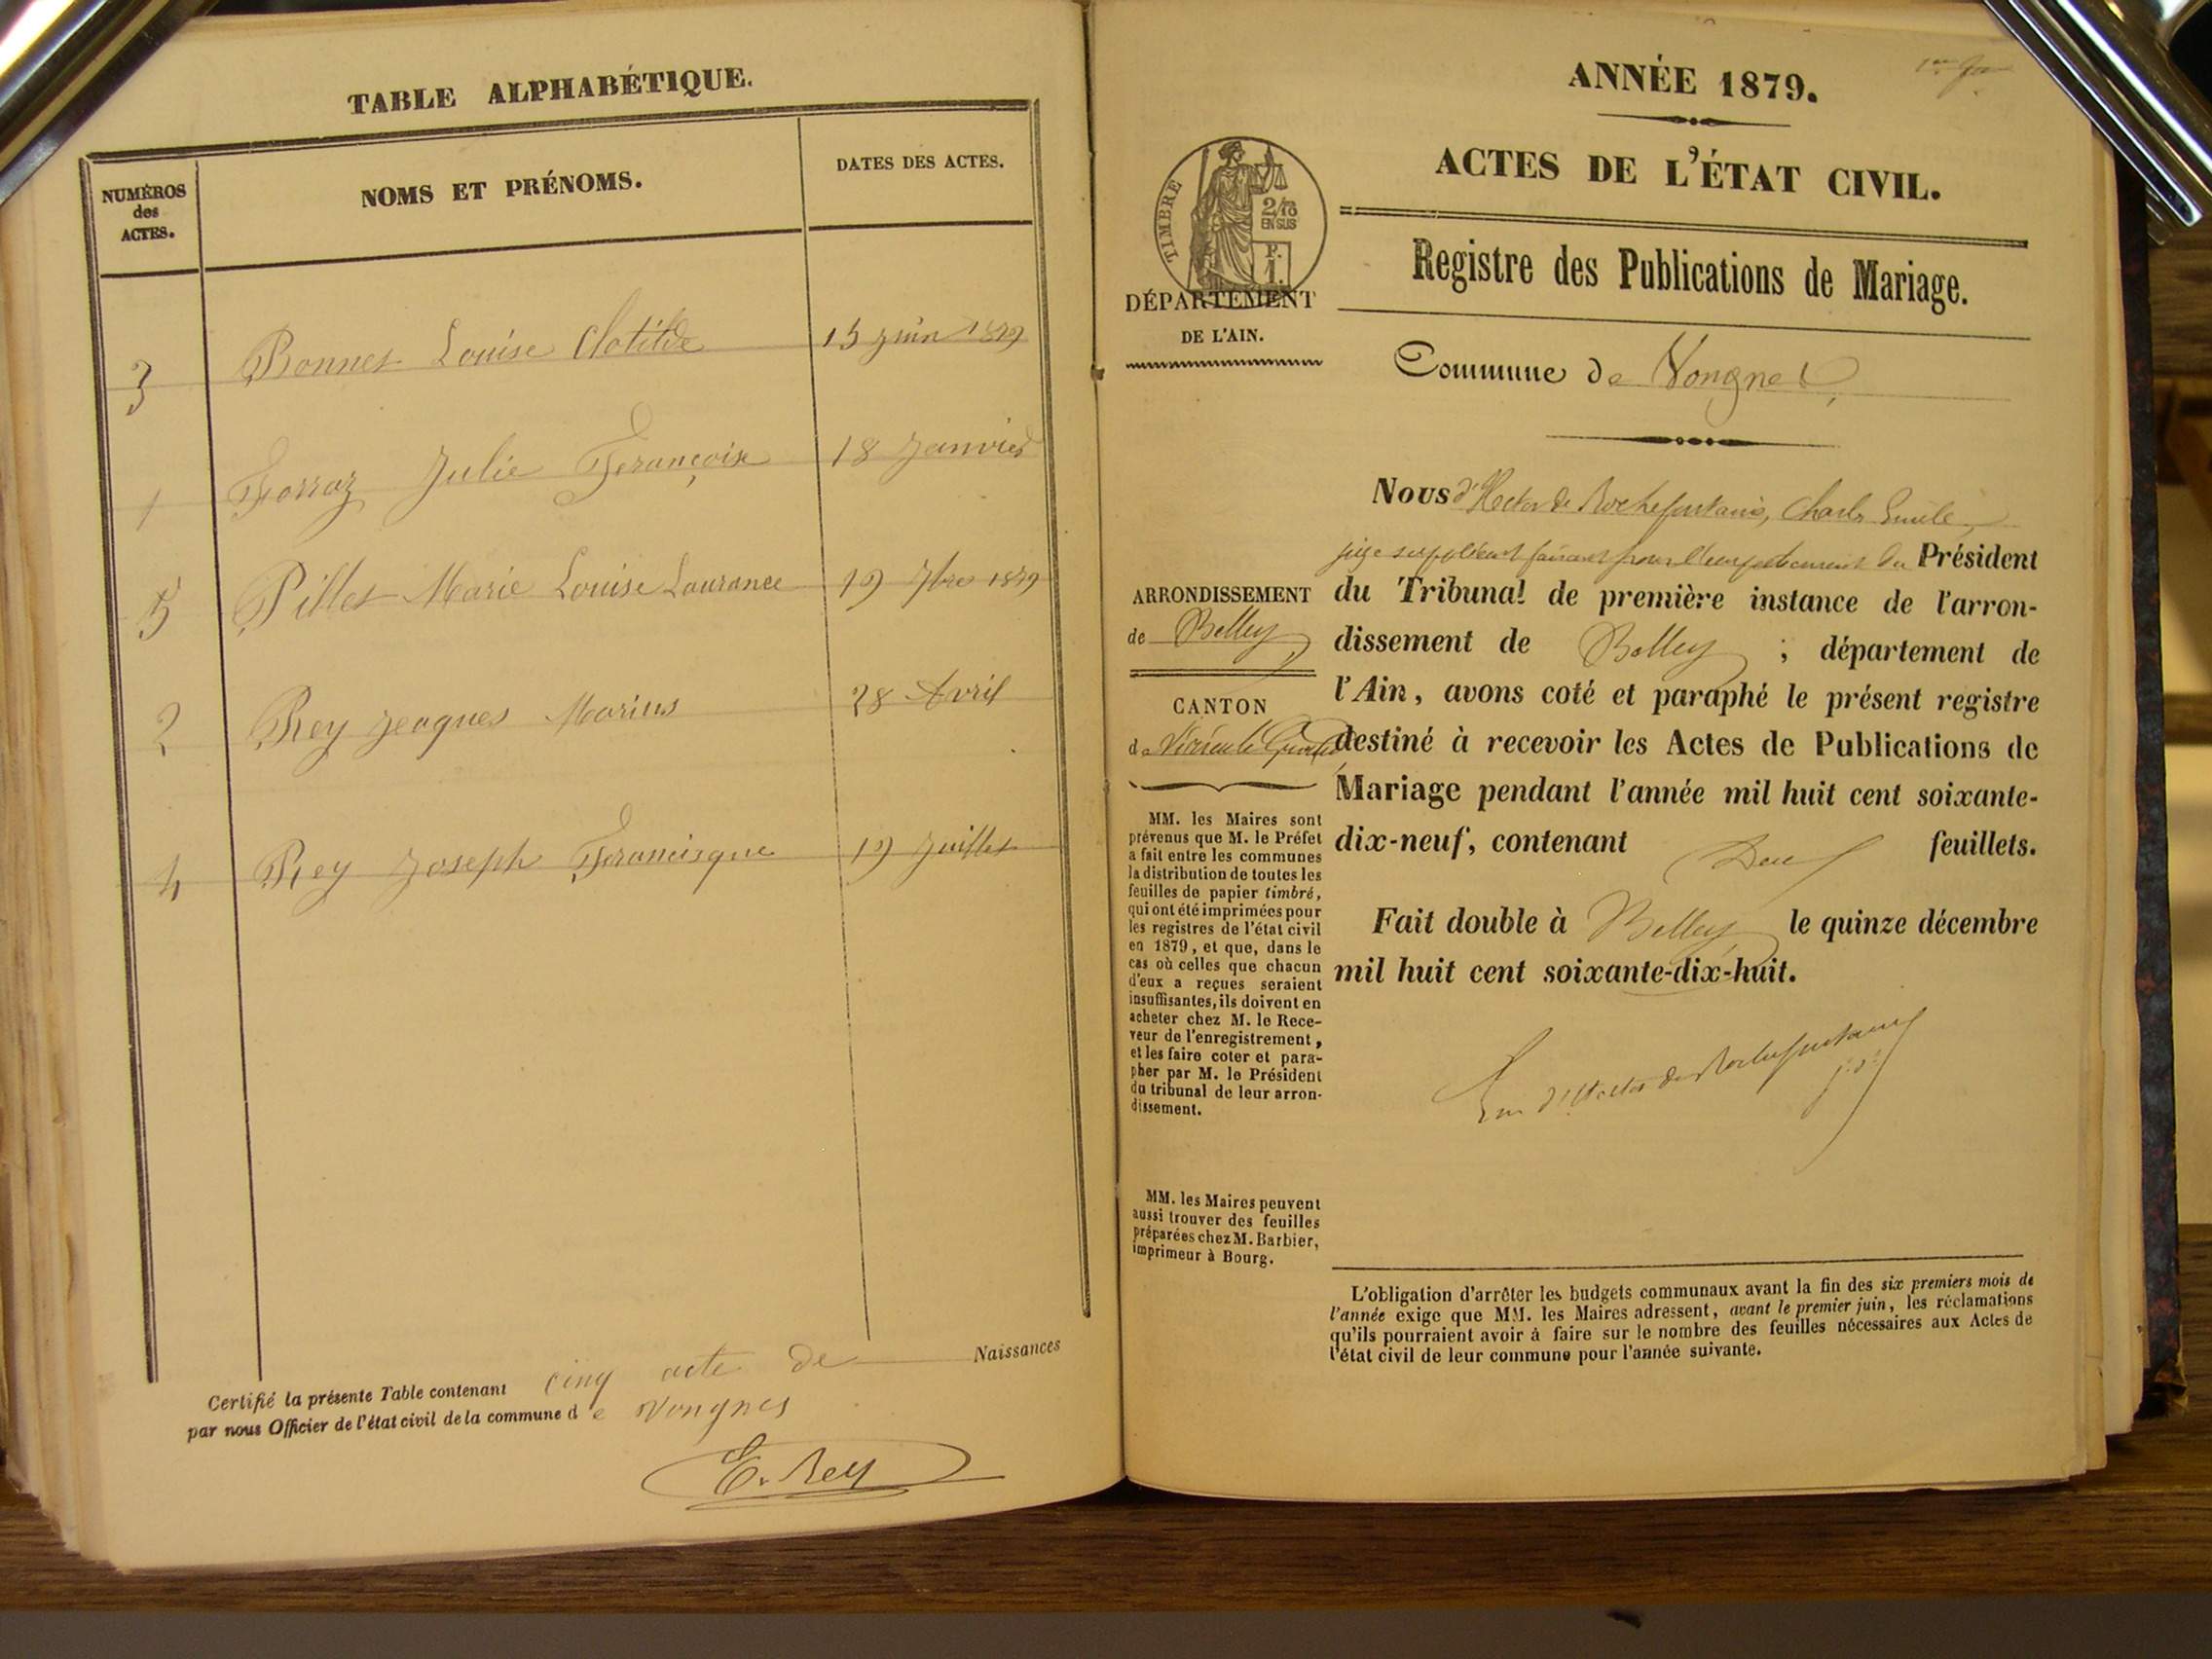 TABLE ALPHABÉTIQUE.
NUMÉROS des ACTES.
NOMS ET PRÉNOMS.
DATES DES ACTES.
3 Bonnet Louise Clotilde 15 juin 1879
1 Forraz Julie Françoise 18 Janvier
5 Pillet Marie Louise Laurance 19 7bre 1879
2 Rey Jeaques Marius 28 Avril
4 Rey Joseph Francisque 19 Juillet
Certifié la présente Table contenant cinq acte de Naissances
par nous Officier de l'état civil de la commune de Vongnes
E. Rey
ANNÉE 1879.
ACTES DE L'ÉTAT CIVIL.
TIMBRE
2/10
EN SUS
P.
1.
Registre des Publications de Mariage.
DÉPARTEMENT
DE L'AIN.
Commune de Vongnes
ARRONDISSEMENT
de Belley
CANTON
de Virieu le Grand
MM. les Maires sont
prévenus que M. le Préfet
a fait entre les communes
la distribution de toutes les
feuilles de papier timbré,
qui ont été imprimées pour
les registres de l'état civil
en 1879, et que, dans le
cas où celles que chacun
d'eux a reçues seraient
insuffisantes, ils doivent en
acheter chez M. le Rece-
veur de l'enregistrement,
et les faire coter et para-
pher par M. le Président
du tribunal de leur arron-
dissement.
MM. les Maires peuvent
aussi trouver des feuilles
préparées chez M. Barbier,
imprimeur à Bourg.
Nous d'Hector de Rochefontaine, Charles Emile,
juge suppléant faisant pour l'empêchement du Président
du Tribunal de première instance de l'arron-
dissement de Belley ; département de
l'Ain, avons coté et paraphé le présent registre
destiné à recevoir les Actes de Publications de
Mariage pendant l'année mil huit cent soixante-
dix-neuf, contenant Deux feuillets.
Fait double à Belley le quinze décembre
mil huit cent soixante-dix-huit.
Em d'Hector de Rochefontaine
L'obligation d'arrêter les budgets communaux avant la fin des six premiers mois de
l'année exige que MM. les Maires adressent, avant le premier juin, les réclamations
qu'ils pourraient avoir à faire sur le nombre des feuilles nécessaires aux Actes de
l'état civil de leur commune pour l'année suivante.